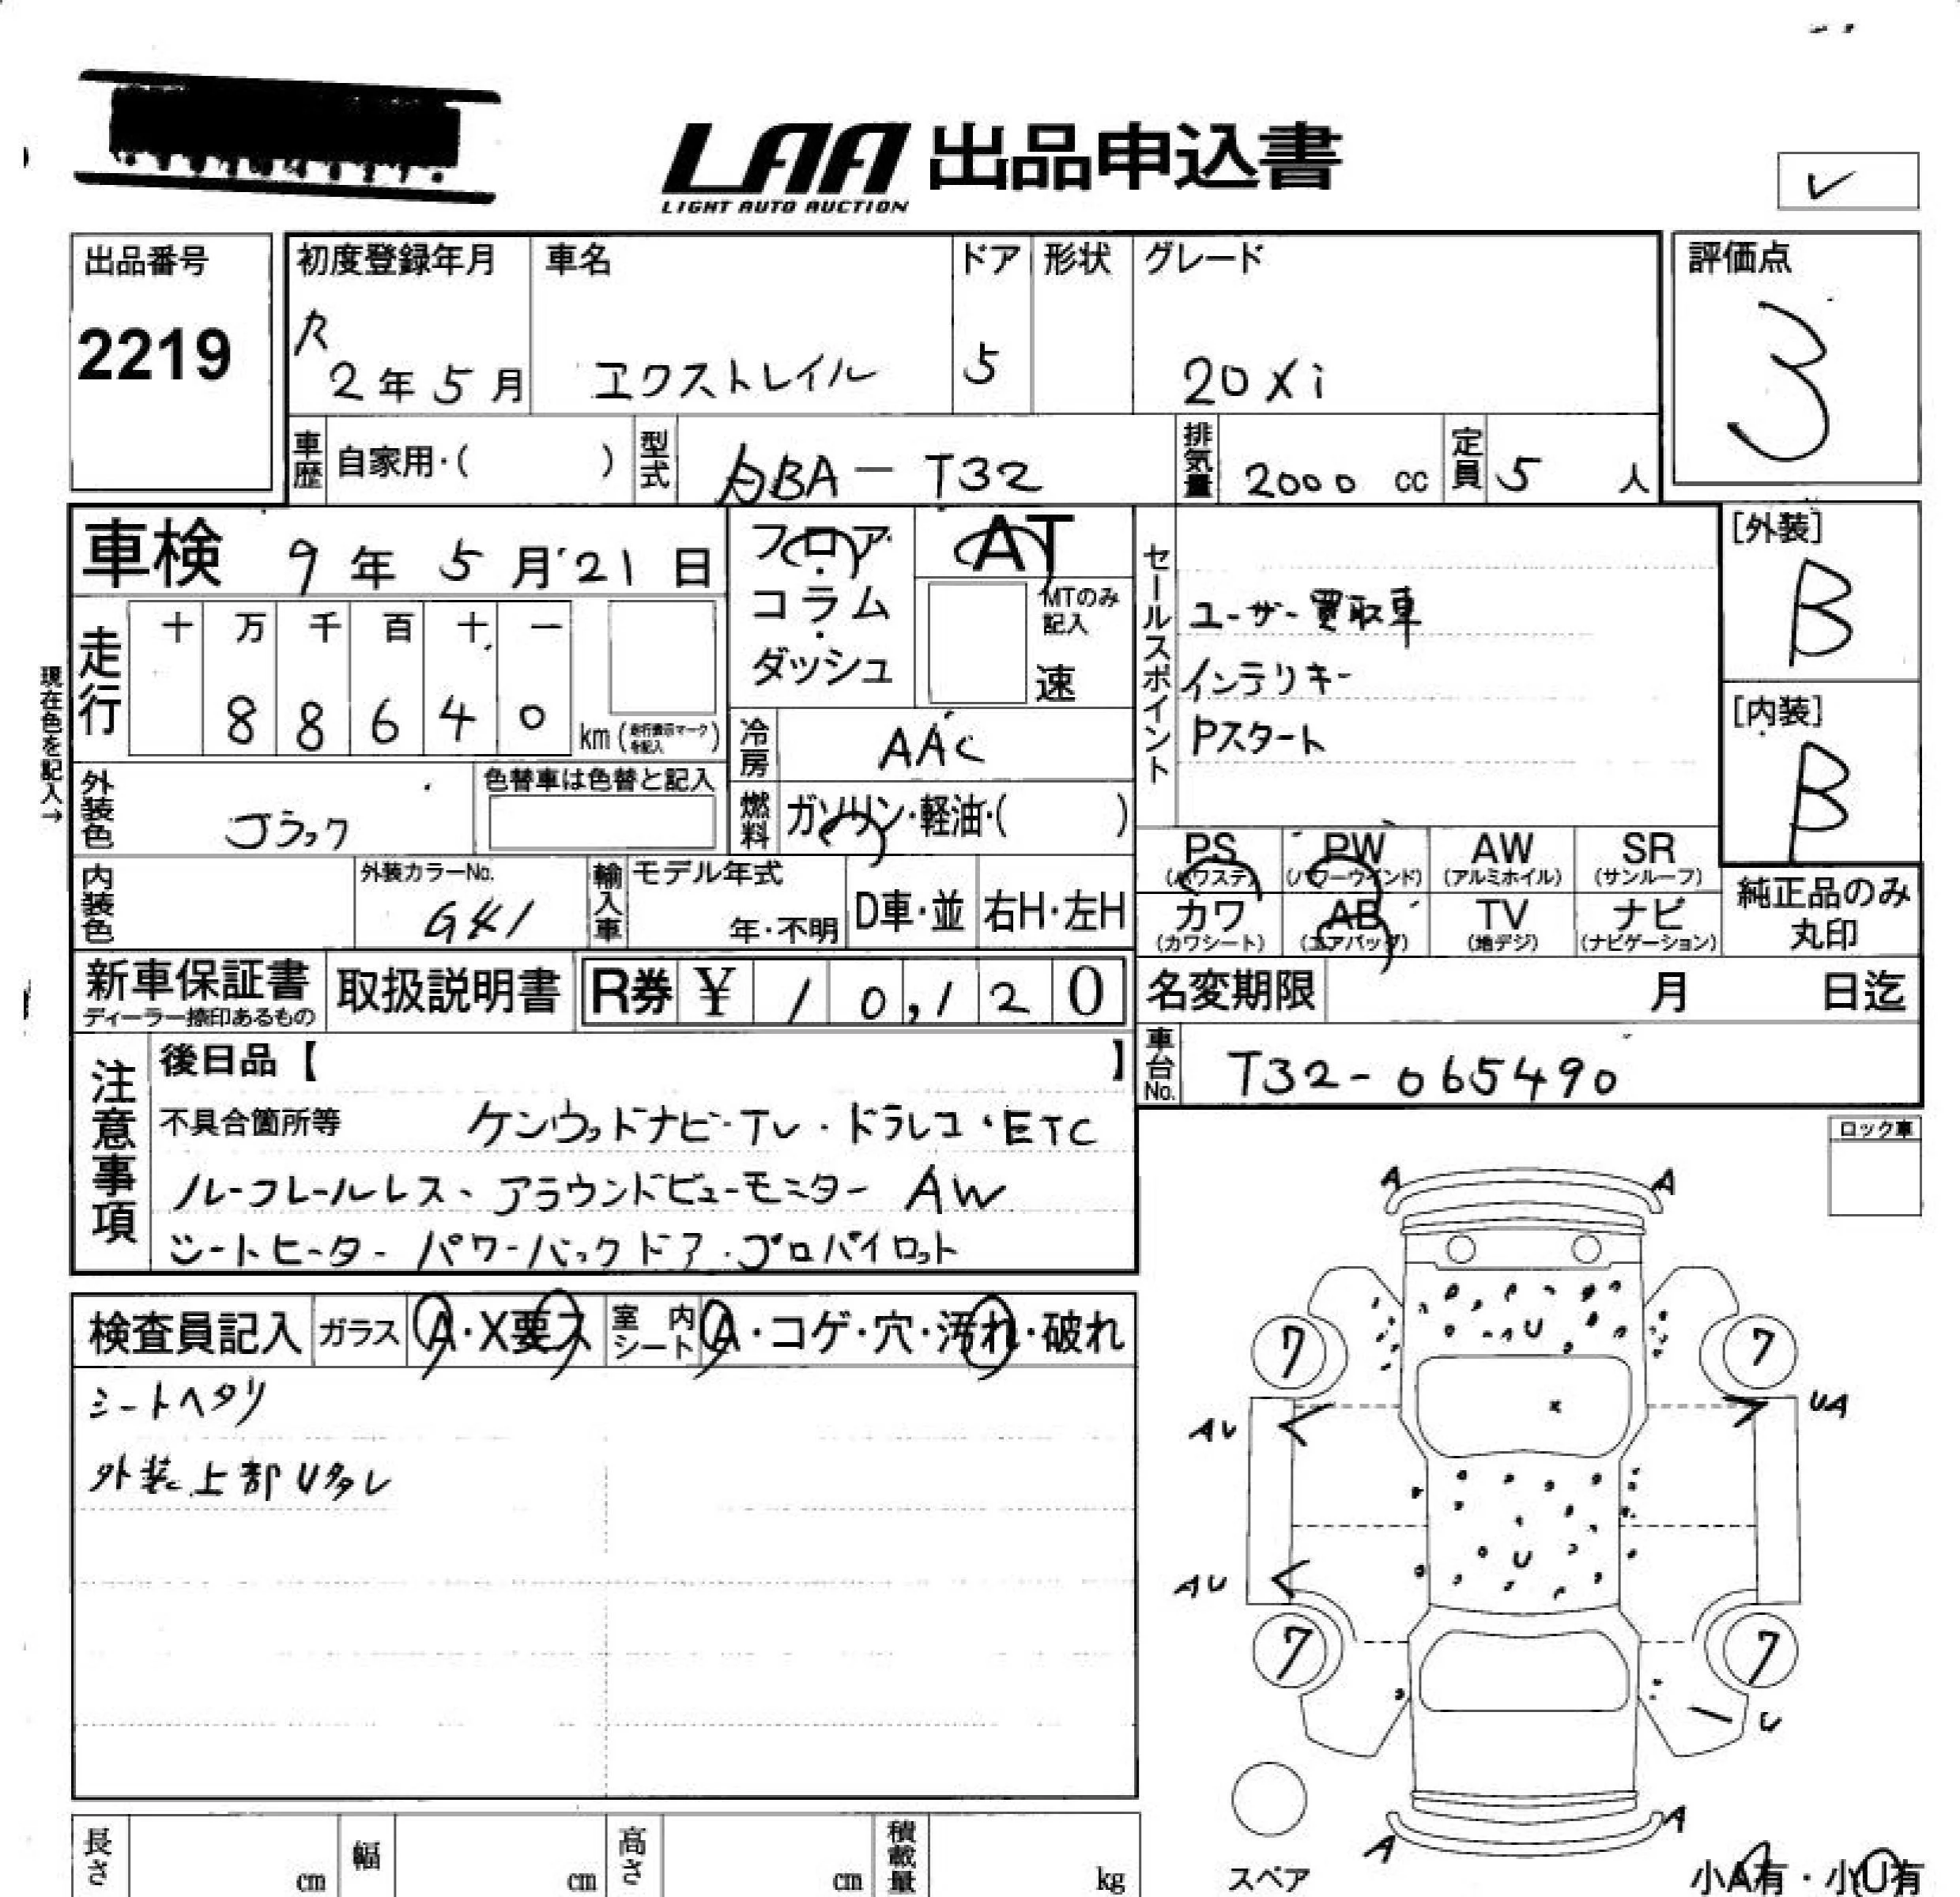 LAA 出品申込書
LIGHT AUTO AUCTION
出品番号
2219
初度登録年月
R
2年5月
車名
エクストレイル
ドア
5
形状
グレード
20Xi
評価点
3
車歴 自家用・( )
型式 BA-T32
排気量 2000 cc
定員 5 人
車検 9年5月21日
フロア・コラム・ダッシュ
AT
MTのみ記入
速
セールスポイント
ユーザー買取車
インテリキー
Pスタート
[外装]
B
[内装]
B
現在色を記入→
走行
十 万 千 百 十 一
8 8 6 4 0 km (走行表示マークを記入)
冷房 AAC
外装色 ブラック
色替車は色替と記入
燃料 ガソリン・軽油・( )
PS (パワステ)
PW (パワーウインド)
AW (アルミホイル)
SR (サンルーフ)
カワ (カワシート)
AB (エアバッグ)
TV (地デジ)
ナビ (ナビゲーション)
純正品のみ丸印
内装色
外装カラーNo.
G41
輸入車
モデル年式
年・不明
D車・並
右H・左H
新車保証書
ディーラー捺印あるもの
取扱説明書
R券 ¥ 10,120
名変期限 月 日迄
車台No. T32-065490
注意事項
後日品【 】
不具合箇所等 ケンウッドナビ・TV・ドラレコ・ETC
ルーフレールレス、アラウンドビューモニター AW
シートヒーター パワーバックドア・プロパイロット
ロック車
検査員記入
ガラス A・X要ス
室内シート A・コゲ・穴・汚れ・破れ
シートヘタリ
外装上部U多シ
A A
U
7 7
x
AU UA
U
AU
7 7
U
A A
スペア
小A有・小U有
長さ cm
幅 cm
高さ cm
積載量 kg